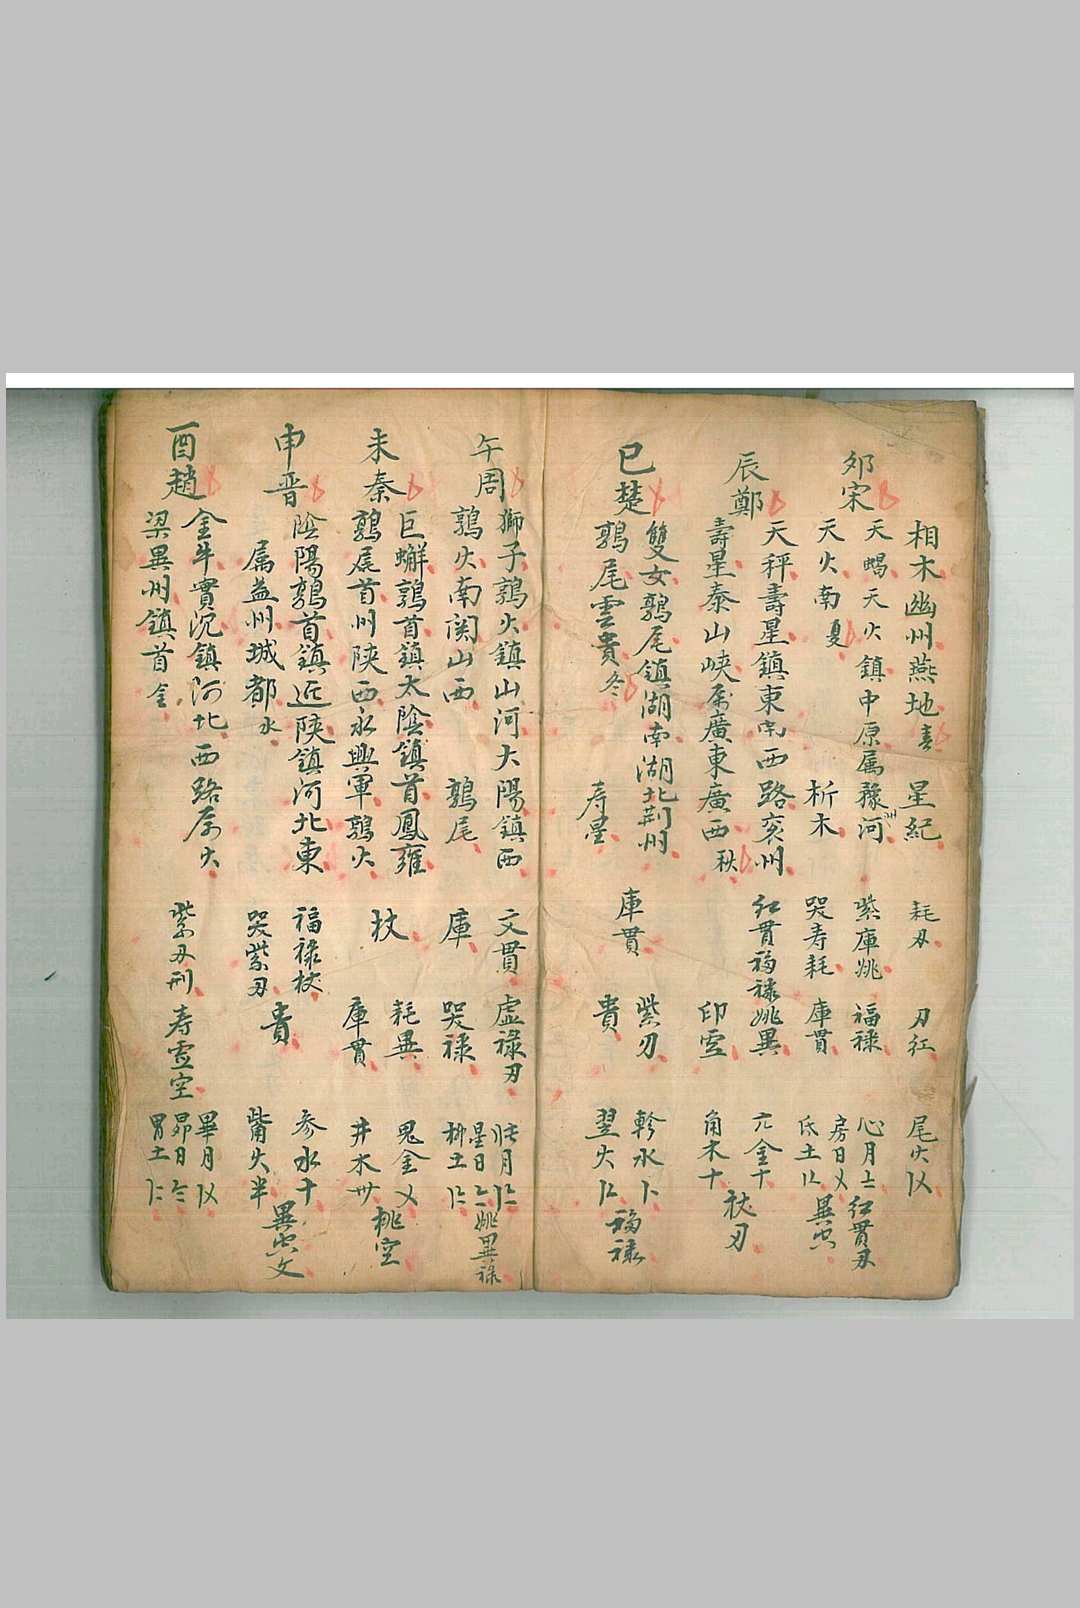 相木幽州燕地春 星紀 耗刃 刃紅 尾火
夘宋
天蝎天火鎮中原属豫州河 紫庫姚 福祿 心月 紅貫刃
天火南 夏 析木 哭寿耗 庫貫 房日 氐土 異
辰鄭
天秤壽星鎮東南西路兖州 紅貫福祿姚異 亢金十
壽星泰山峽属廣東廣西秋 印虚 角木十 杖刃
巳楚
雙女鶉尾鎮湖南湖北荆州 庫貫 紫刃 軫水
鶉尾雲貴冬 寿星 貴 翌火 福祿
午周
獅子鶉火鎮山河大陽鎮西 文貫 虚祿刃 張月
鶉火南関山西 鶉尾 庫 哭祿 星日 柳土 姚異祿
未秦
巨蠏鶉首鎮太陰鎮首鳳雍 杖 耗異 鬼金
鶉尾首州陕西永興軍鶉火 庫貫 井木 桃空
申晋
陰陽鶉首鎮近陕鎮河北東 福祿杖 貴 参水十
属益州城都水 哭紫刃 觜火半 異
酉趙
金牛實沉鎮河北西路属火 紫刃刑 寿虚空 畢月
梁異州鎮首金 昴日 胃土